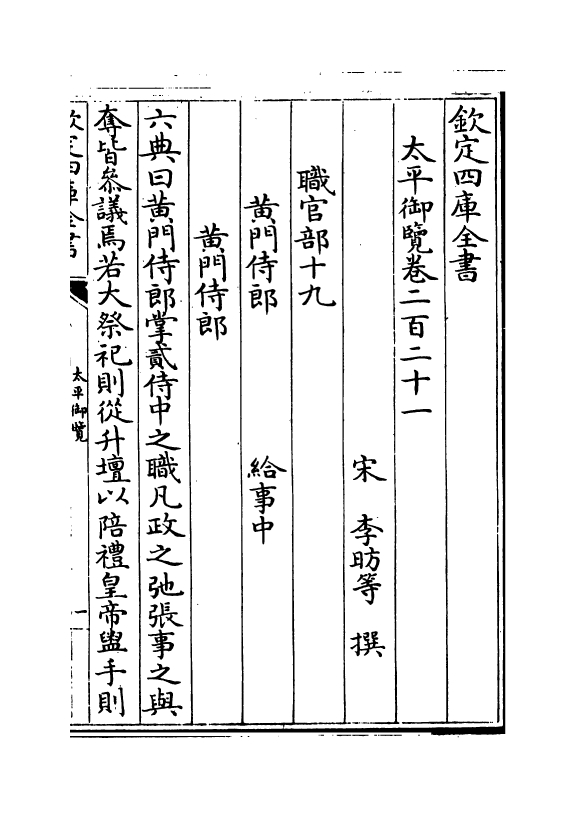 欽定四庫全書
太平御覽卷二百二十一
宋 李昉等 撰
職官部十九
黄門侍郎 給事中
黄門侍郎
六典曰黄門侍郎掌貳侍中之職凡政之弛張事之與
奪皆叅議焉若大祭祀則從升壇以陪禮皇帝盥手則
欽定四庫全書
太平御覽
一